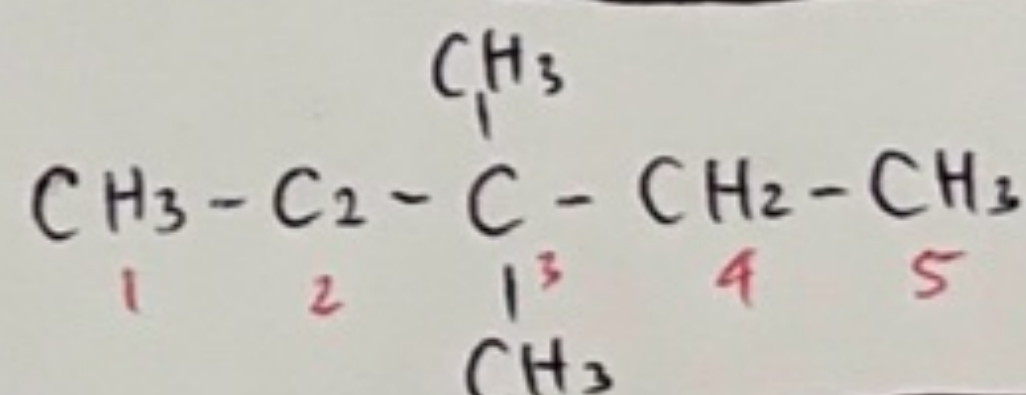 CH3
CH3 - C2 - C - CH2 - CH3
1 2 3 4 5
CH3